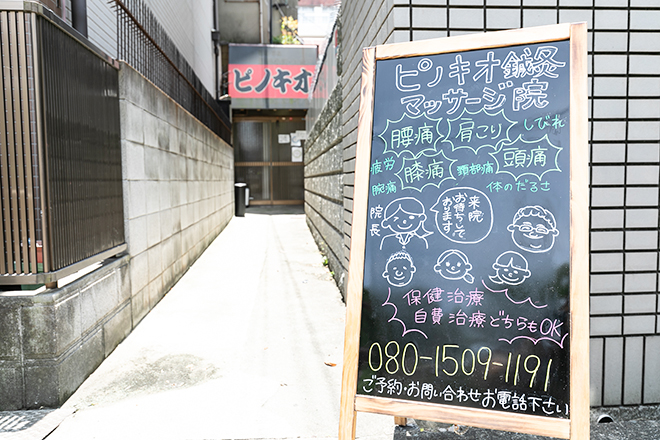 ピノキオ
ピノキオ鍼灸
マッサージ院
腰痛 肩こり しびれ
疲労 膝痛 頚部痛 頭痛
腕痛 体のだるさ
院長
来院
お待ちして
おります
保健治療
自費治療どちらもOK
080-1509-1191
ご予約・お問い合わせお電話下さい